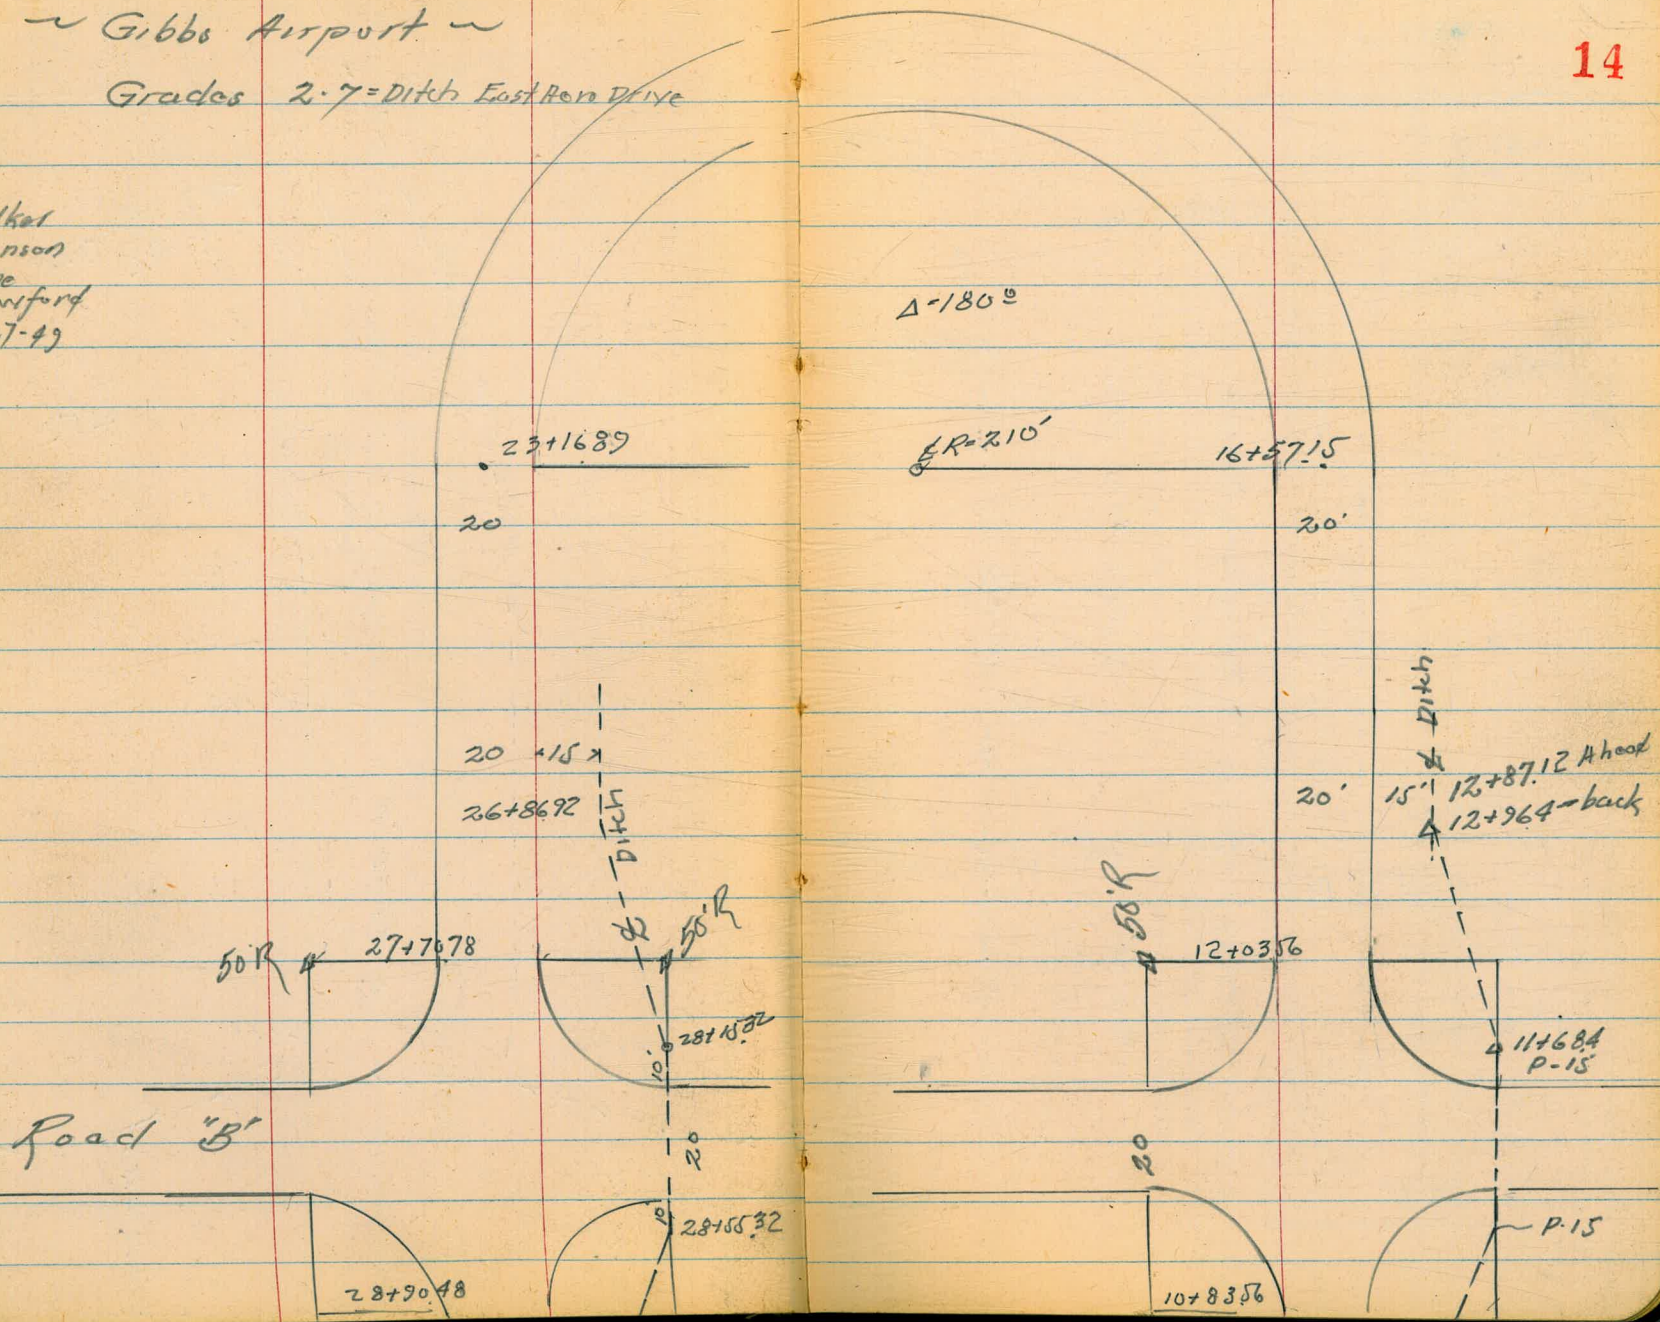 ~ Gibbs Airport ~
14
Grades 2.7=Ditch East Aero Drive
lker
nson
e
wford
7-49
Δ=180°
23+16.89
℄ R=210'
16+57.15
20
20'
Ditch
20 15
26+86.92
Ditch
℄
20' 15'
℄
12+87.12 Ahead
12+96.4-back
50'R
27+70.78
50'R
50'R
12+03.56
28+15.32
10'
11+68.4
P-15
Road "B"
20
20
10'
28+55.32
P-15
28+90.48
10+83.56